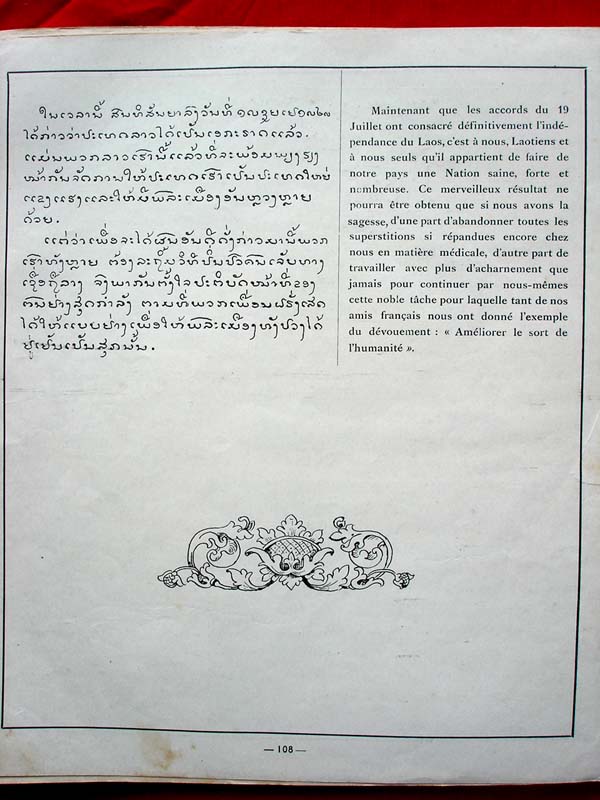 ໃນເວລານີ້ ສົນທິສັນຍາລົງວັນທີ່
ໄດ້ກ່າວວ່າປະເທດລາວໄດ້ເປັນເອກະຣາດແລ້ວ.
ແມ່ນພວກລາວເຮົານີ້ແລ້ວທີ່ຈະພ້ອມພຽງຮຽງ
ໜ້າກັນຈັດການໃຫ້ປະເທດເຮົາເປັນປະເທດໃຫຍ່
ແຂງແຮງແລະໃຫ້ມີພົລະເມືອງອັນຫຼວງຫຼາຍ
ດ້ວຍ.
ແຕ່ວ່າເພື່ອຈະໄດ້ຜົນອັນດີດັ່ງກ່າວມານີ້ພວກ
ເຮົາທັງຫຼາຍ ຕ້ອງລະຖິ້ມວິທີປິ່ນປົວຄົນເຈັບທາງ
ເຊື່ອຖືລາງ ຈົ່ງພາກັນຕັ້ງໃຈປະຕິບັດໜ້າທີ່ຂອງ
ຕົນຢ່າງສຸດກຳລັງ ຕາມທີ່ພວກເພື່ອນຝຣັ່ງເສດ
ໄດ້ໃຫ້ແບບຢ່າງເພື່ອໃຫ້ພົລະເມືອງທັງປວງໄດ້
ຢູ່ເຢັນເປັນສຸກນັ້ນ.
Maintenant que les accords du 19
Juillet ont consacré définitivement l'indé-
pendance du Laos, c'est à nous, Laotiens et
à nous seuls qu'il appartient de faire de
notre pays une Nation saine, forte et
nombreuse. Ce merveilleux résultat ne
pourra être obtenu que si nous avons la
sagesse, d'une part d'abandonner toutes les
superstitions si répandues encore chez
nous en matière médicale, d'autre part de
travailler avec plus d'acharnement que
jamais pour continuer par nous-mêmes
cette noble tâche pour laquelle tant de nos
amis français nous ont donné l'exemple
du dévouement : « Améliorer le sort de
l'humanité ».
— 108 —